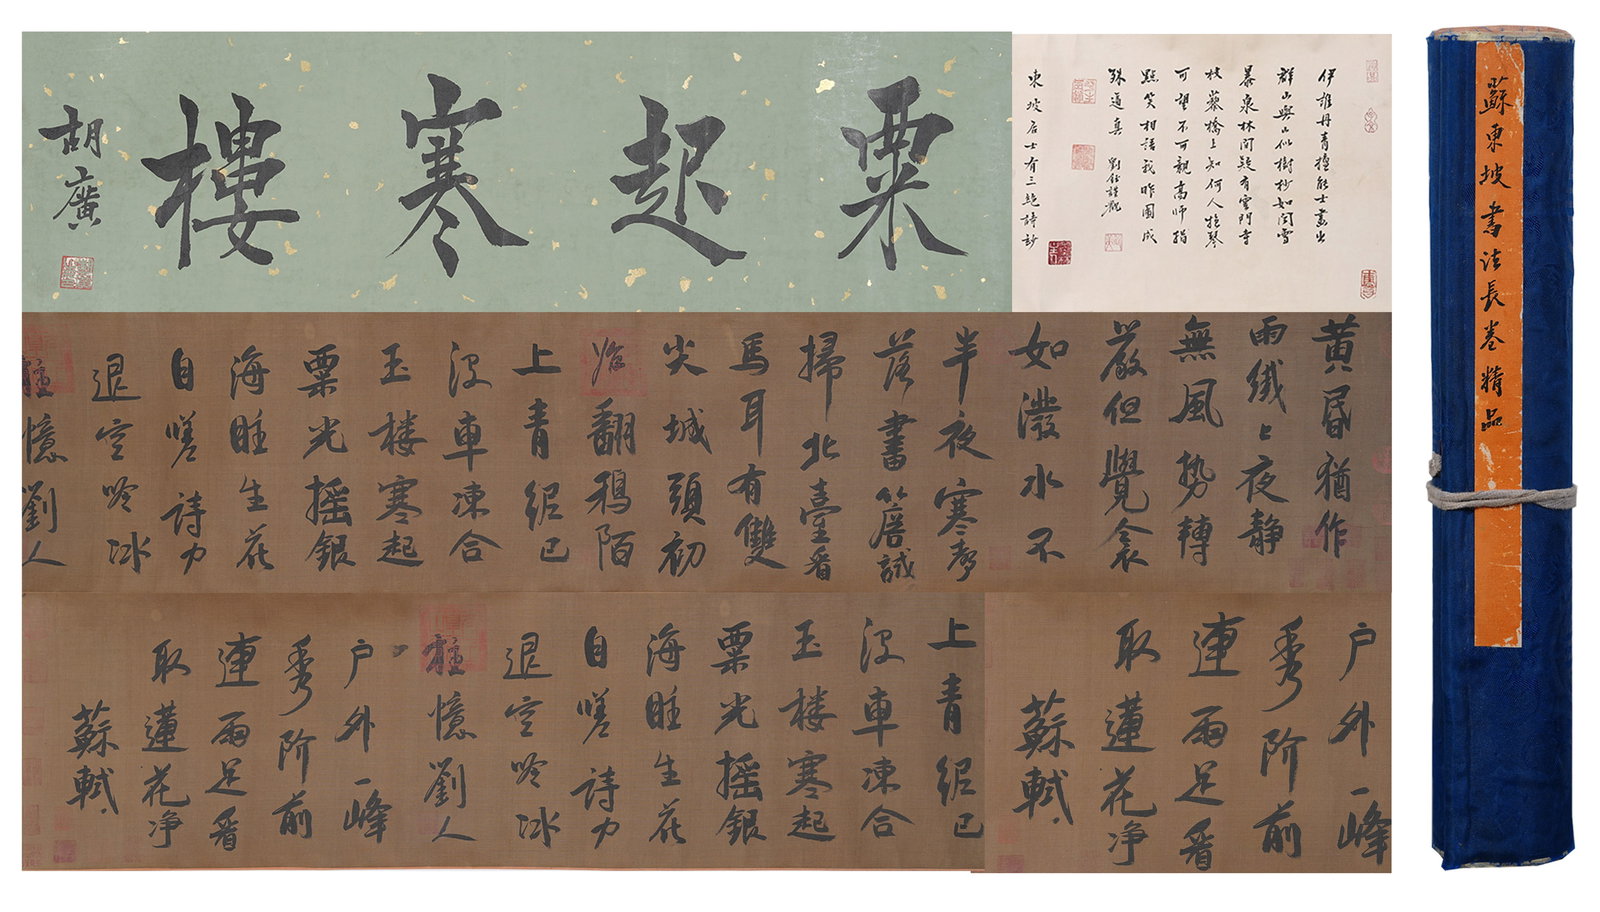 粟起寒樓
胡廣
伊誰丹青擅能士畫出
群山與山似樹杪如聞雪
暴東林間疑有雲門寺
枝藜橋上知何人 琴
可望不可親高師指
點笑相語我昨圖成
殊逼真 劉鈺謹觀
東坡居士有三絕詩妙
蘇東坡書法長卷精品
黃昏猶作
雨纖々夜靜
無風勢轉
嚴但覺衾
如潑水不
半夜寒聲
落書簷試
掃北臺看
馬耳有雙
尖城頭初
始翻鴉陌
上青已
沒車凍合
玉樓寒起
粟光搖銀
海眩生花
自嗟詩力
退空吟冰
憶劉人
戶外一峰
秀階前
連雨足看
取蓮花净
蘇軾
上青已
沒車凍合
玉樓寒起
粟光搖銀
海眩生花
自嗟詩力
退空吟冰
憶劉人
戶外一峰
秀階前
連雨足看
取蓮花净
蘇軾